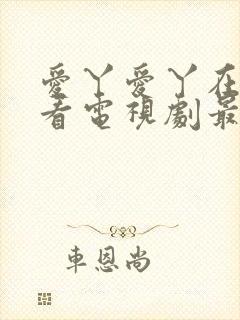 愛丫愛丫在
看電視劇最
車恩尚